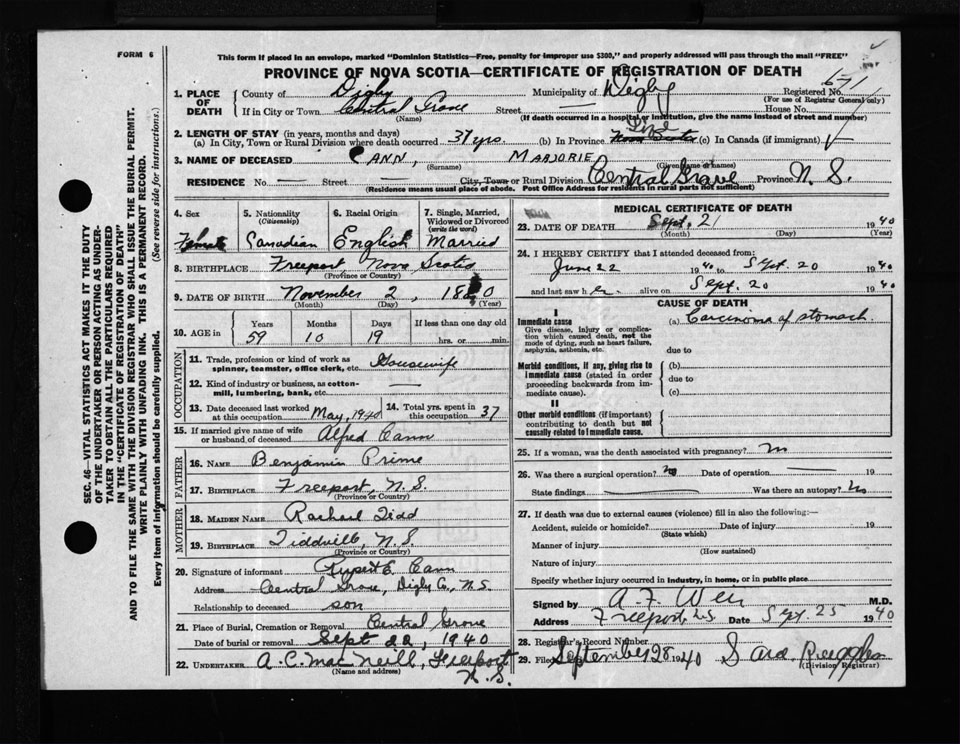 FORM 6
This form if placed in an envelope, marked "Dominion Statistics—Free, penalty for improper use $300," and properly addressed will pass through the mail "FREE"
PROVINCE OF NOVA SCOTIA—CERTIFICATE OF REGISTRATION OF DEATH
671
1. PLACE OF DEATH County of Digby Municipality of Digby Registered No.
(For use of Registrar General only)
If in City or Town Central Grove Street — House No.
(Name) (If death occurred in a hospital or institution, give the name instead of street and number)
2. LENGTH OF STAY (in years, months and days)
(a) In City, Town or Rural Division where death occurred 37 yrs (b) In Province Nova Scotia Life (c) In Canada (if immigrant) ✓
3. NAME OF DECEASED CANN, MARJORIE
(Surname) (Given name or names)
RESIDENCE No. — Street — City, Town or Rural Division Central Grove Province N. S.
(Residence means usual place of abode. Post Office Address for residents in rural parts not sufficient)
4. Sex Female
5. Nationality (Citizenship) Canadian
6. Racial Origin English
7. Single, Married, Widowed or Divorced (write the word) Married
8. BIRTHPLACE Freeport, Nova Scotia
(Province or Country)
9. DATE OF BIRTH November 2, 1880
(Month) (Day) (Year)
10. AGE in Years Months Days If less than one day old
59 10 19 hrs. or min.
OCCUPATION
11. Trade, profession or kind of work as spinner, teamster, office clerk, etc. Housewife
12. Kind of industry or business, as cotton-mill, lumbering, bank, etc. —
13. Date deceased last worked at this occupation May, 1940
14. Total yrs. spent in this occupation 37
15. If married give name of wife or husband of deceased Alfred Cann
FATHER
16. NAME Benjamin Prime
17. BIRTHPLACE Freeport, N. S.
(Province or Country)
MOTHER
18. MAIDEN NAME Rachael Tidd
19. BIRTHPLACE Tiddville, N. S.
(Province or Country)
20. Signature of informant Rupert E. Cann
Address Central Grove, Digby Co., N. S.
Relationship to deceased son
21. Place of Burial, Cremation or Removal Central Grove
Date of burial or removal Sept 22, 1940
22. UNDERTAKER A. C. MacNeill, Freeport N. S.
(Name and address)
MEDICAL CERTIFICATE OF DEATH
23. DATE OF DEATH Sept. 21 1940
(Month) (Day) (Year)
24. I HEREBY CERTIFY that I attended deceased from:
June 22 1940 to Sept. 20 1940
and last saw her alive on Sept. 20 1940
CAUSE OF DEATH
I
Immediate cause (a) Carcinoma of stomach.
Give disease, injury or complication which caused death, not the mode of dying, such as heart failure, asphyxia, asthenia, etc.
due to
Morbid conditions, if any, giving rise to immediate cause (stated in order proceeding backwards from immediate cause).
(b)
due to
(c)
II
Other morbid conditions (if important) contributing to death but not causally related to immediate cause.
25. If a woman, was the death associated with pregnancy? no
26. Was there a surgical operation? no Date of operation — 19
State findings — Was there an autopsy? no
27. If death was due to external causes (violence) fill in also the following:—
Accident, suicide or homicide? Date of injury 19
(State which)
Manner of injury
(How sustained)
Nature of injury
Specify whether injury occurred in industry, in home, or in public place
Signed by A. F. Weir M.D.
Address Freeport, NS Date Sept. 25 1940
28. Registrar's Record Number
29. Filed September 28 1940 Sara Ruggles
(Division Registrar)
SEC. 46—VITAL STATISTICS ACT MAKES IT THE DUTY
OF THE UNDERTAKER OR PERSON ACTING AS UNDER-
TAKER TO OBTAIN ALL THE PARTICULARS REQUIRED
IN THE "CERTIFICATE OF REGISTRATION OF DEATH"
AND TO FILE THE SAME WITH THE DIVISION REGISTRAR WHO SHALL ISSUE THE BURIAL PERMIT.
WRITE PLAINLY WITH UNFADING INK. THIS IS A PERMANENT RECORD.
Every item of information should be carefully supplied. (See reverse side for instructions.)